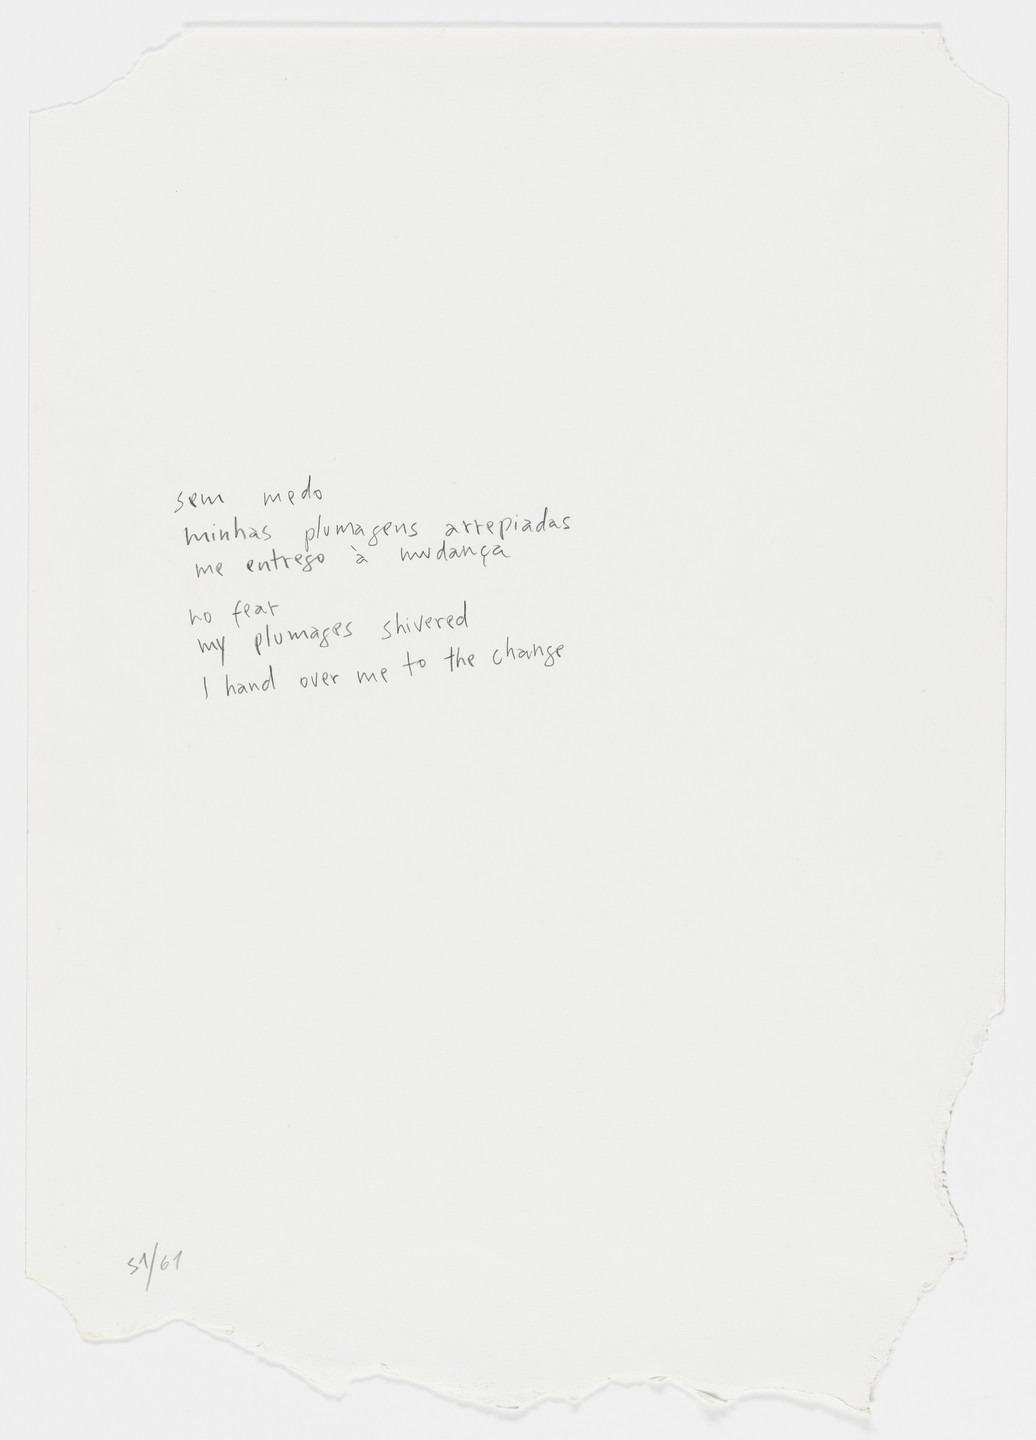 sem medo
minhas plumagens arrepiadas
me entrego à mudança
no fear
my plumages shivered
I hand over me to the change
51/61